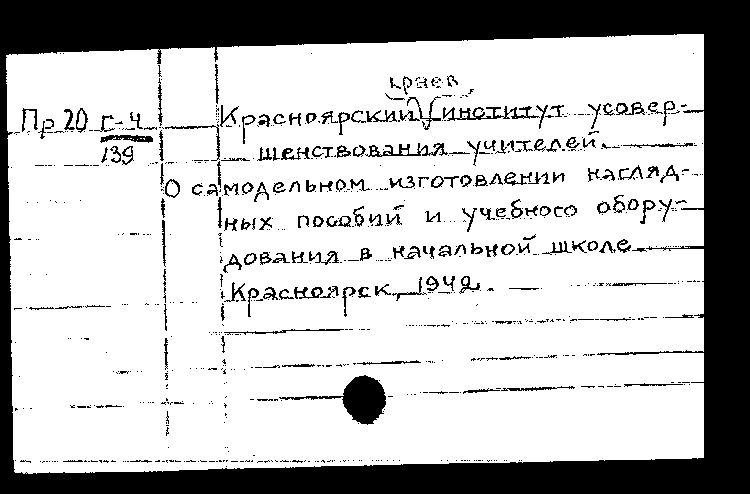 краев.
Пр 20 г-4 Красноярский институт усовер-
139 шенствования учителей.
О самодельном изготовлении нагляд-
ных пособий и учебного обору-
дования в начальной школе.
Красноярск, 1942.